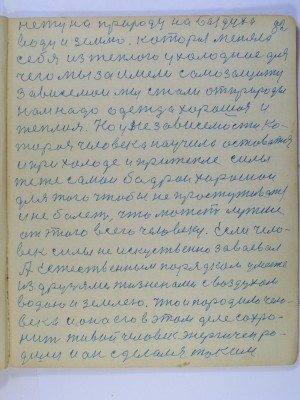 нету на природу на воздухъ 92
воду и землю. которая меняла
себя из теплого у холодное для
чего мы заимели самозащиту
зависемой мы стали от природы
нам надо одежда хорошая и
теплая. Но у независемости ко-
торая человека научила оставатся
и при холоде и при тепле силы
те же самои бодрои хорошои
для того чтобы не простуживатся
и не болет, что может лутше
от этого всего человеку. Если чело-
век силы не искуственно завоевал
А естественным порядкам
из друзями жизненами с воздухом
водою и землею. что и породило чело-
века и оно его в этом деле сохра-
нит живой человек энергичен ро-
дили и он сделался таким